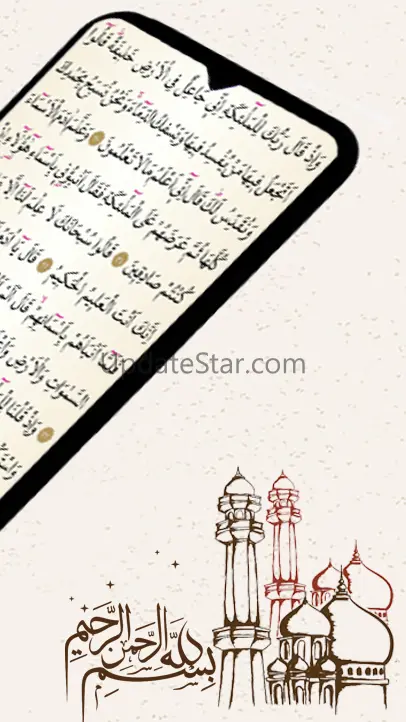 وَإِذْ قَالَ رَبُّكَ لِلْمَلَٰٓئِكَةِ إِنِّي جَاعِلٌ فِي الْأَرْضِ خَلِيفَةً قَالُوا
أَتَجْعَلُ فِيهَا مَن يُفْسِدُ فِيهَا وَيَسْفِكُ الدِّمَاءَ وَنَحْنُ نُسَبِّحُ بِحَمْدِكَ
وَنُقَدِّسُ لَكَ قَالَ إِنِّي أَعْلَمُ مَا لَا تَعْلَمُونَ وَعَلَّمَ آدَمَ الْأَسْمَاءَ
كُلَّهَا ثُمَّ عَرَضَهُمْ عَلَى الْمَلَٰٓئِكَةِ فَقَالَ أَنبِئُونِي بِأَسْمَاءِ هَٰؤُلَاءِ
كُنتُمْ صَادِقِينَ قَالُوا سُبْحَانَكَ لَا عِلْمَ لَنَا إِلَّا
إِنَّكَ أَنتَ الْعَلِيمُ الْحَكِيمُ قَالَ يَا آدَمُ
أَنبَأَهُم بِأَسْمَائِهِمْ قَالَ أَلَمْ
السَّمَٰوَاتِ وَالْأَرْضِ
وَإِذْ قُلْنَا
UpdateStar.com
بِسْمِ اللَّهِ الرَّحْمَٰنِ الرَّحِيمِ